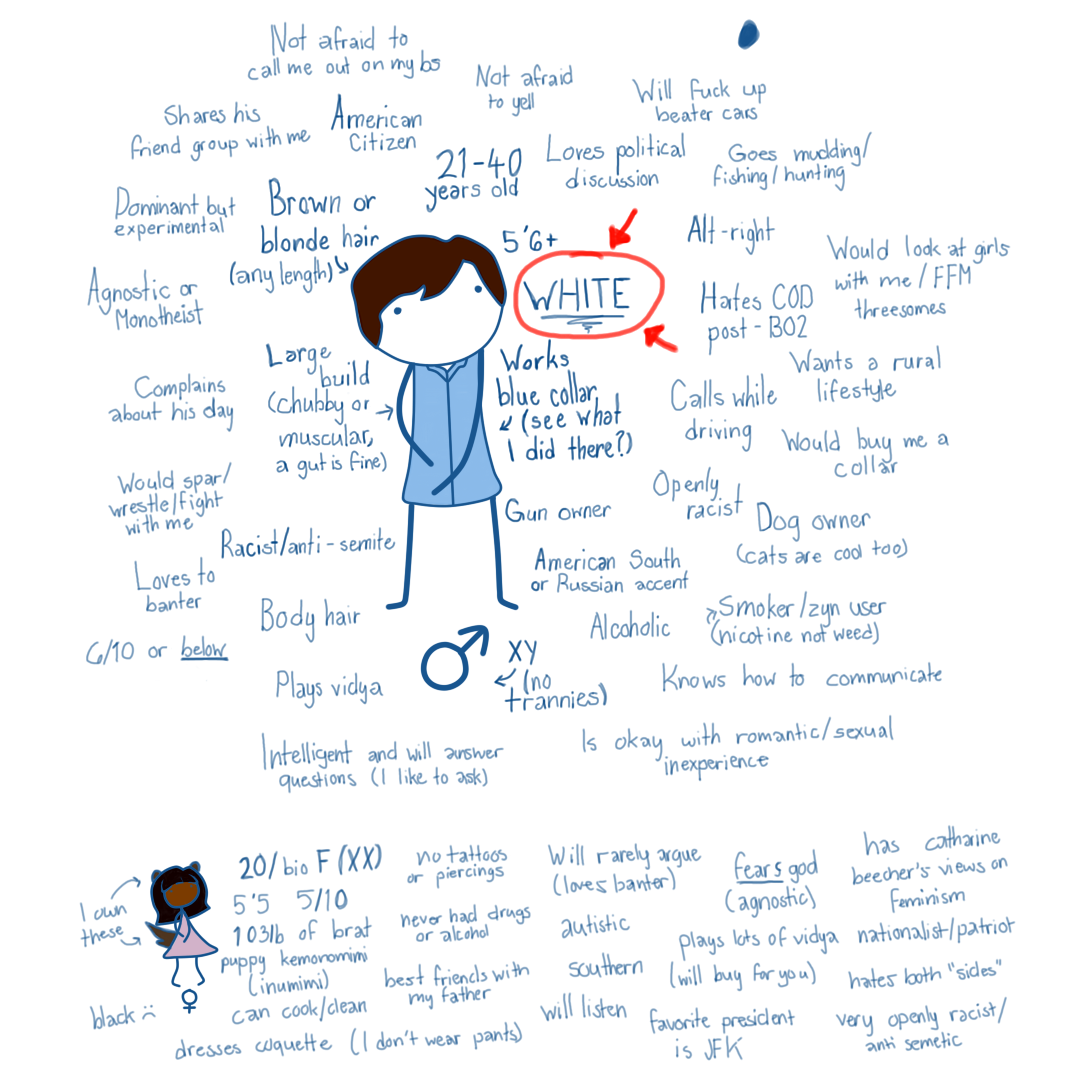 Not afraid to
call me out on my bs
Not afraid
to yell
Will fuck up
beater cars
Shares his
friend group with me
American
Citizen
21-40
years old
Loves political
discussion
Goes mudding/
fishing/hunting
Dominant but
experimental
Brown or
blonde hair
(any length)
5'6+
WHITE
Alt-right
Would look at girls
with me / FFM
threesomes
Agnostic or
Monotheist
Hates COD
post-BO2
Large
build
(chubby or
muscular,
a gut is fine)
Works
blue collar
(see what
I did there?)
Wants a rural
lifestyle
Complains
about his day
Calls while
driving
Would buy me a
collar
Would spar/
wrestle/fight
with me
Openly
racist
Gun owner
Dog owner
(cats are cool too)
Racist/anti-semite
American South
or Russian accent
Loves to
banter
Body hair
Alcoholic
Smoker/zyn user
(nicotine not weed)
6/10 or below
XY
(no
trannies)
Plays vidya
Knows how to communicate
Intelligent and will answer
questions (I like to ask)
Is okay with romantic/sexual
inexperience
I own
these
black :(
20/bio F (XX)
5'5 5/10
103lb of brat
puppy kemonomimi
(inumimi)
can cook/clean
dresses coquette (I don't wear pants)
no tattoos
or piercings
never had drugs
or alcohol
best friends with
my father
Will rarely argue
(loves banter)
autistic
southern
will listen
fears god
(agnostic)
plays lots of vidya
(will buy for you)
favorite president
is JFK
has catharine
beecher's views on
feminism
nationalist/patriot
hates both "sides"
very openly racist/
anti semetic